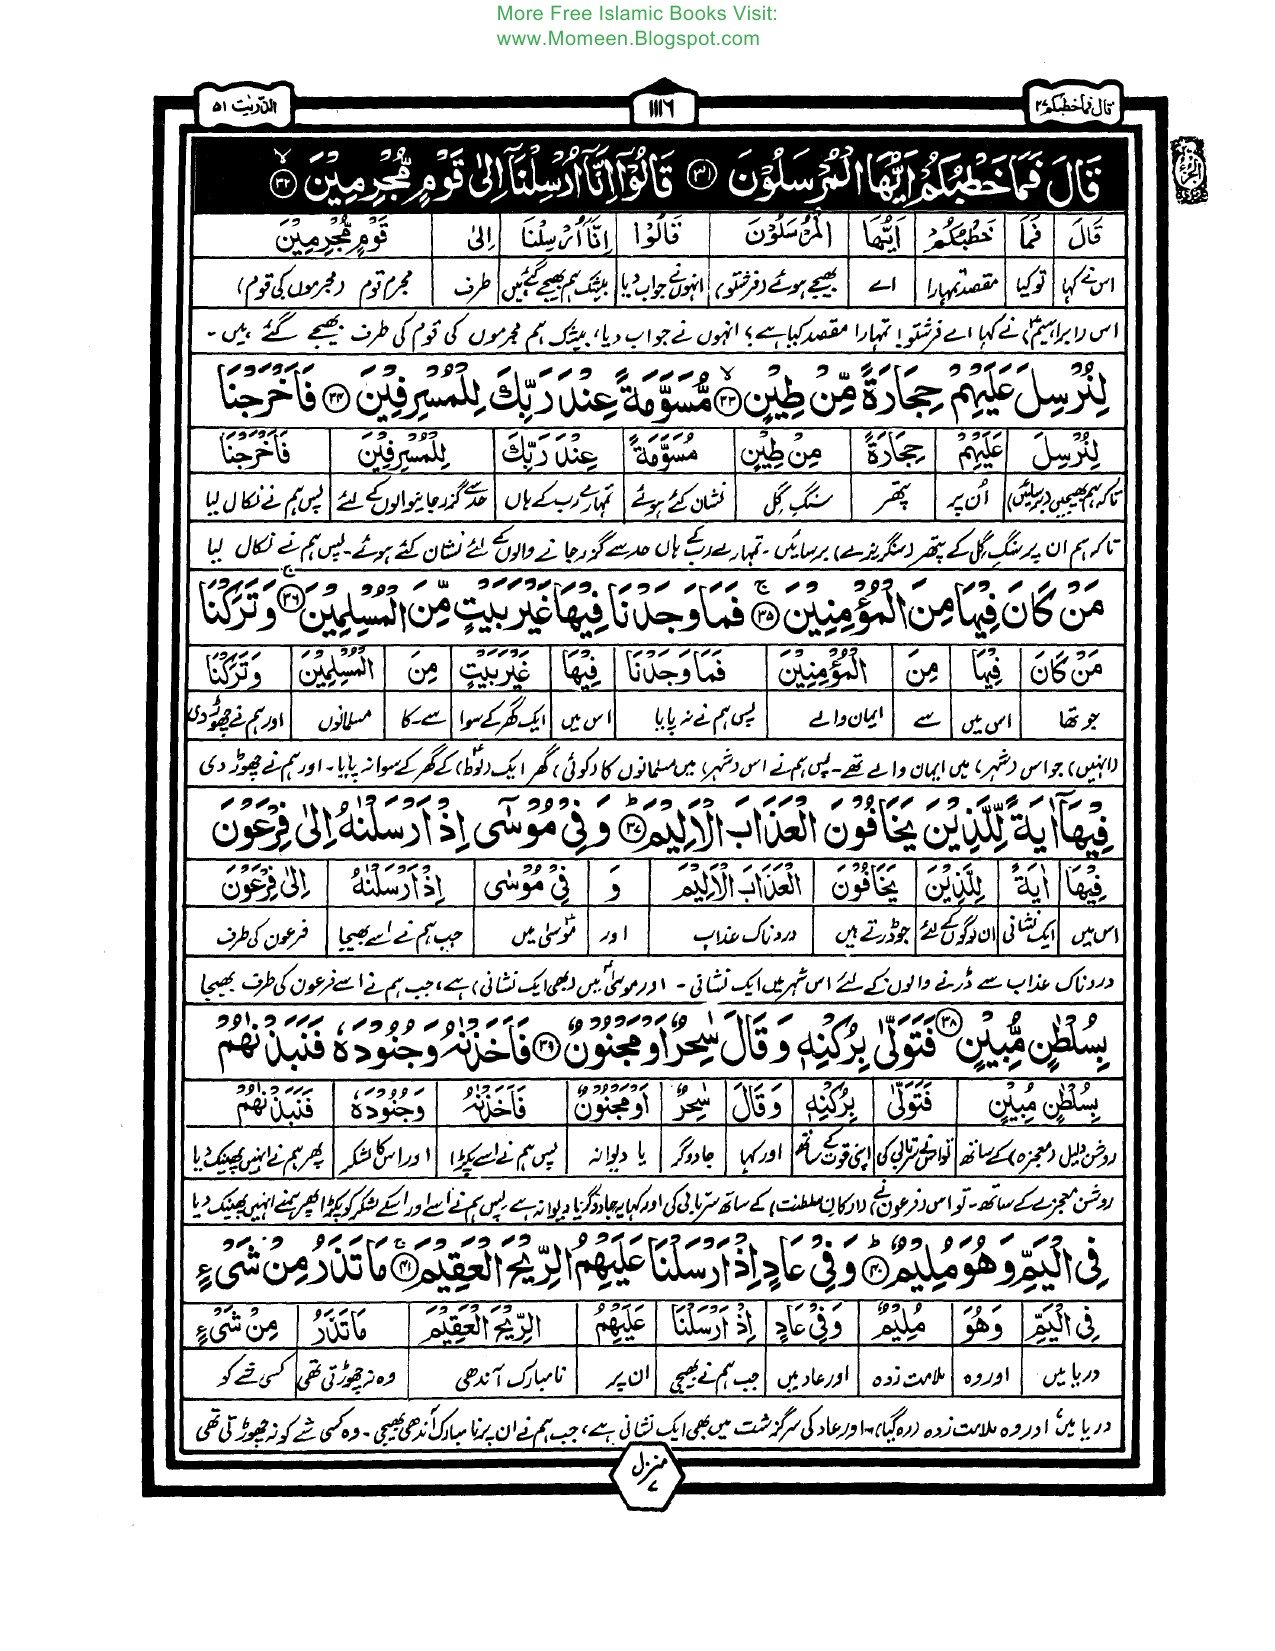 More Free Islamic Books Visit:
www.Momeen.Blogspot.com
قال فما خطبکم ۲۷
۱۱۱۶
الذّٰریٰت ۵۱
قَالَ فَمَا خَطْبُكُمْ اَيُّهَا الْمُرْسَلُوْنَ ۳۱ قَالُوْٓا اِنَّآ اُرْسِلْنَآ اِلٰى قَوْمٍ مُّجْرِمِيْنَ ۳۲
قَالَ فَمَا خَطْبُكُمْ اَيُّهَا الْمُرْسَلُوْنَ قَالُوْا اِنَّآ اُرْسِلْنَا اِلٰى قَوْمٍ مُّجْرِمِيْنَ
اس نے کہا تو کیا مقصد تمہارا اے بھیجے ہوئے (فرشتو) انہوں نے جواب دیا بیشک ہم بھیجے گئے ہیں طرف مجرم قوم (مجرموں کی قوم)
اس (ابراہیمؑ) نے کہا اے فرشتو! تمہارا مقصد کیا ہے؟ انہوں نے جواب دیا، بیشک ہم مجرموں کی قوم کی طرف بھیجے گئے ہیں۔
لِنُرْسِلَ عَلَيْهِمْ حِجَارَةً مِّنْ طِيْنٍ ۳۳ مُّسَوَّمَةً عِنْدَ رَبِّكَ لِلْمُسْرِفِيْنَ ۳۴ فَاَخْرَجْنَا
لِنُرْسِلَ عَلَيْهِمْ حِجَارَةً مِنْ طِيْنٍ مُسَوَّمَةً عِنْدَ رَبِّكَ لِلْمُسْرِفِيْنَ فَاَخْرَجْنَا
تاکہ ہم بھیجیں (برسائیں) اُن پر پتھر سنگِ گِل نشان کئے ہوئے تمہارے رب کے ہاں حد سے گزر جانیوالوں کے لئے پس ہم نے نکال لیا
تاکہ ہم ان پر سنگِ گِل کے پتھر (سنگریزے) برسائیں۔ تمہارے رب کے ہاں حد سے گزر جانے والوں کے لئے نشان کئے ہوئے۔ پس ہم نے نکال لیا
مَنْ كَانَ فِيْهَا مِنَ الْمُؤْمِنِيْنَ ۳۵ فَمَا وَجَدْنَا فِيْهَا غَيْرَ بَيْتٍ مِّنَ الْمُسْلِمِيْنَ ۳۶ وَتَرَكْنَا
مَنْ كَانَ فِيْهَا مِنَ الْمُؤْمِنِيْنَ فَمَا وَجَدْنَا فِيْهَا غَيْرَ بَيْتٍ مِنَ الْمُسْلِمِيْنَ وَتَرَكْنَا
جو تھا اس میں سے ایمان والے پس ہم نے نہ پایا اس میں ایک گھر کے سوا سے۔کا مسلمانوں اور ہم نے چھوڑ دی
(انہیں) جو اس (شہر) میں ایمان والے تھے۔ پس ہم نے اس (شہر) میں مسلمانوں کا (کوئی) گھر ایک (لوطؑ) کے گھر کے سوا نہ پایا۔ اور ہم نے چھوڑ دی
فِيْهَآ اٰيَةً لِّلَّذِيْنَ يَخَافُوْنَ الْعَذَابَ الْاَلِيْمَ ۳۷ وَفِيْ مُوْسٰٓى اِذْ اَرْسَلْنٰهُ اِلٰى فِرْعَوْنَ
فِيْهَا اٰيَةً لِلَّذِيْنَ يَخَافُوْنَ الْعَذَابَ الْاَلِيْمَ وَ فِيْ مُوْسٰى اِذْ اَرْسَلْنٰهُ اِلٰى فِرْعَوْنَ
اس میں ایک نشانی ان لوگوں کے لئے جو ڈرتے ہیں دردناک عذاب اور موسٰیؑ میں جب ہم نے اسے بھیجا فرعون کی طرف
دردناک عذاب سے ڈرنے والوں کے لئے اس شہر میں ایک نشانی۔ اور موسٰیؑ میں (بھی ایک نشانی) ہے، جب ہم نے اسے فرعون کی طرف بھیجا
بِسُلْطٰنٍ مُّبِيْنٍ ۳۸ فَتَوَلّٰى بِرُكْنِهٖ وَقَالَ سٰحِرٌ اَوْ مَجْنُوْنٌ ۳۹ فَاَخَذْنٰهُ وَجُنُوْدَهٗ فَنَبَذْنٰهُمْ
بِسُلْطٰنٍ مُبِيْنٍ فَتَوَلّٰى بِرُكْنِهٖ وَقَالَ سٰحِرٌ اَوْ مَجْنُوْنٌ فَاَخَذْنٰهُ وَجُنُوْدَهٗ فَنَبَذْنٰهُمْ
روشن دلیل (معجزہ) کے ساتھ تو اس نے سرتابی کی اپنی قوت کے ساتھ اور کہا جادوگر یا دیوانہ پس ہم نے اسے پکڑا اور اس کا لشکر پھر ہم نے انہیں پھینک دیا
روشن معجزے کے ساتھ۔ تو اس (فرعون) نے (ارکانِ سلطنت) کے ساتھ سرتابی کی اور کہا یہ جادوگر یا دیوانہ ہے پس ہم نے اسے اور اسکے لشکر کو پکڑا پھر ہمنے انہیں پھینک دیا
فِي الْيَمِّ وَهُوَ مُلِيْمٌ ۴۰ وَفِيْ عَادٍ اِذْ اَرْسَلْنَا عَلَيْهِمُ الرِّيْحَ الْعَقِيْمَ ۴۱ مَا تَذَرُ مِنْ شَيْءٍ
فِي الْيَمِّ وَهُوَ مُلِيْمٌ وَفِيْ عَادٍ اِذْ اَرْسَلْنَا عَلَيْهِمُ الرِّيْحَ الْعَقِيْمَ مَا تَذَرُ مِنْ شَيْءٍ
دریا میں اور وہ ملامت زدہ اور عاد میں جب ہم نے بھیجی ان پر نامبارک آندھی وہ نہ چھوڑتی تھی کسی شے کو
دریا میں اور وہ ملامت زدہ (رہ گیا)۔ اور عاد کی سرگزشت میں بھی ایک نشانی ہے، جب ہم نے ان پر نامبارک آندھی بھیجی۔ وہ کسی شے کو نہ چھوڑتی تھی
منزل ۷